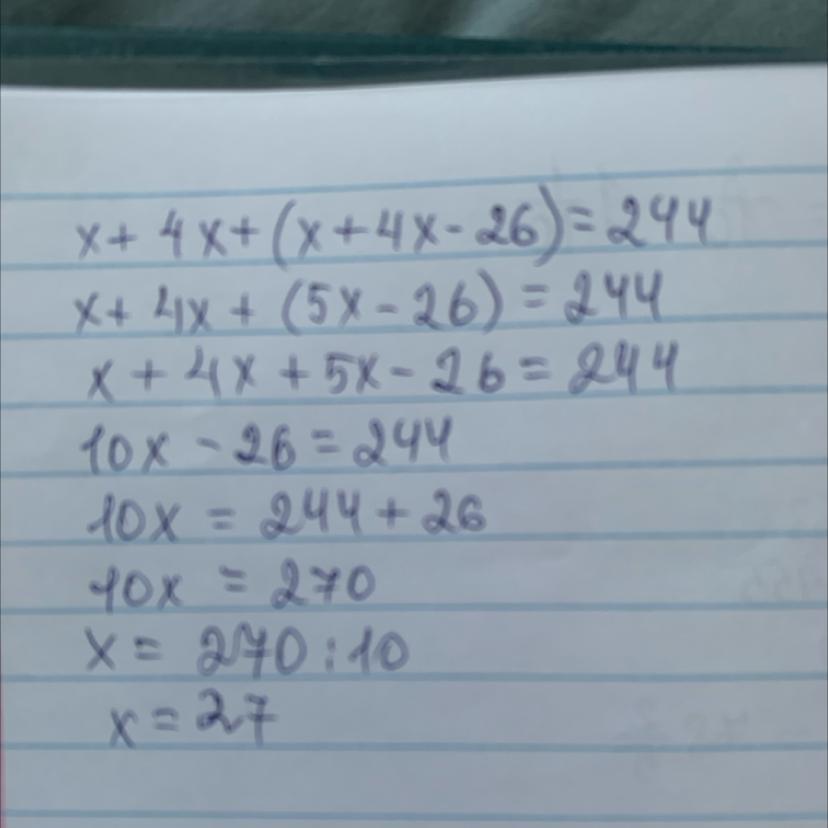 x + 4x + (x + 4x - 26) = 244
x + 4x + (5x - 26) = 244
x + 4x + 5x - 26 = 244
10x - 26 = 244
10x = 244 + 26
10x = 270
x = 270 : 10
x = 27